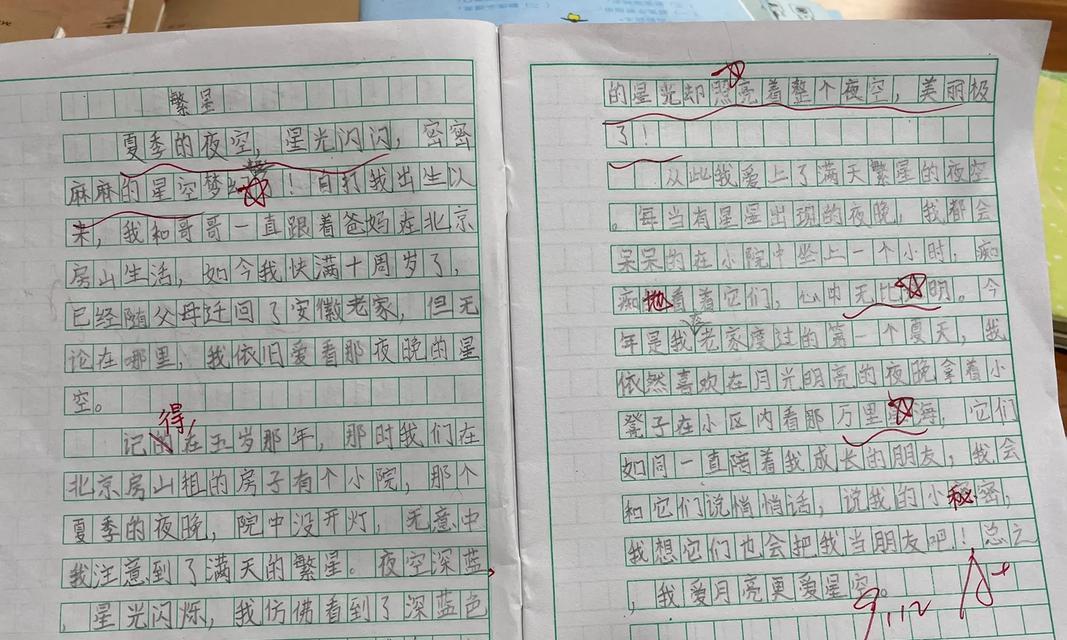 繁星
夏季的夜空，星光闪闪，密密
麻麻的星空梦！自打我出生以
来，我和哥哥一直跟着爸妈在北京
房山生活，如今我快满十周岁了，
已经随父母迁回了安徽老家，但无
论在哪里，我依旧爱看那夜晚的星
空。
得
记的在五岁那年，那时我们在
北京房山租的房子有个小院，那个
夏季的夜晚，院中没开灯，无意中
我注意到了满天的繁星。夜空深蓝
，星光闪烁，我仿佛看到了深蓝色
的星光却照亮着整个夜空，美丽极
了！
从此我爱上了满天繁星的夜空
。每当有星星出现的夜晚，我都会
呆呆的在小院中坐上一个小时，痴
痴地看着它们，心中无比明。今
年是我老家度过的第一个夏天，我
依然喜欢在月光明亮的夜晚拿着小
凳子在小区内看那万里海，它们
如同一直陪着我成长的朋友，我会
和它们说悄悄话，说我的小秘密，
我想它们也会把我当朋友吧！总之
，我爱月亮更爱星空。
9.12 A+